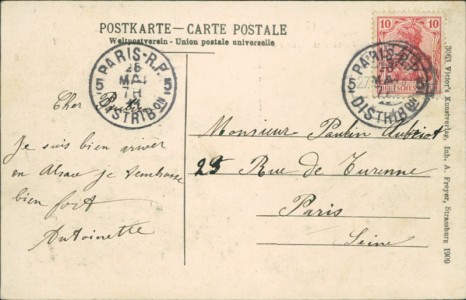 POSTKARTE – CARTE POSTALE
Weltpostverein - Union postale universelle
PARIS-R.P.
25
MAI
7H
5 5
DISTRIB ON
10 10
PARIS-R.P.
5 5
MAI
DISTRIB ON
Cher
Monsieur Paulin
25 Rue de Turenne
Paris
Seine
Je suis bien arriver
en Alsace je t'embrasse
bien fort
Antoinette
3063 Victor's Kunstverlag, Inh. A. Freyer, Strassburg 1909